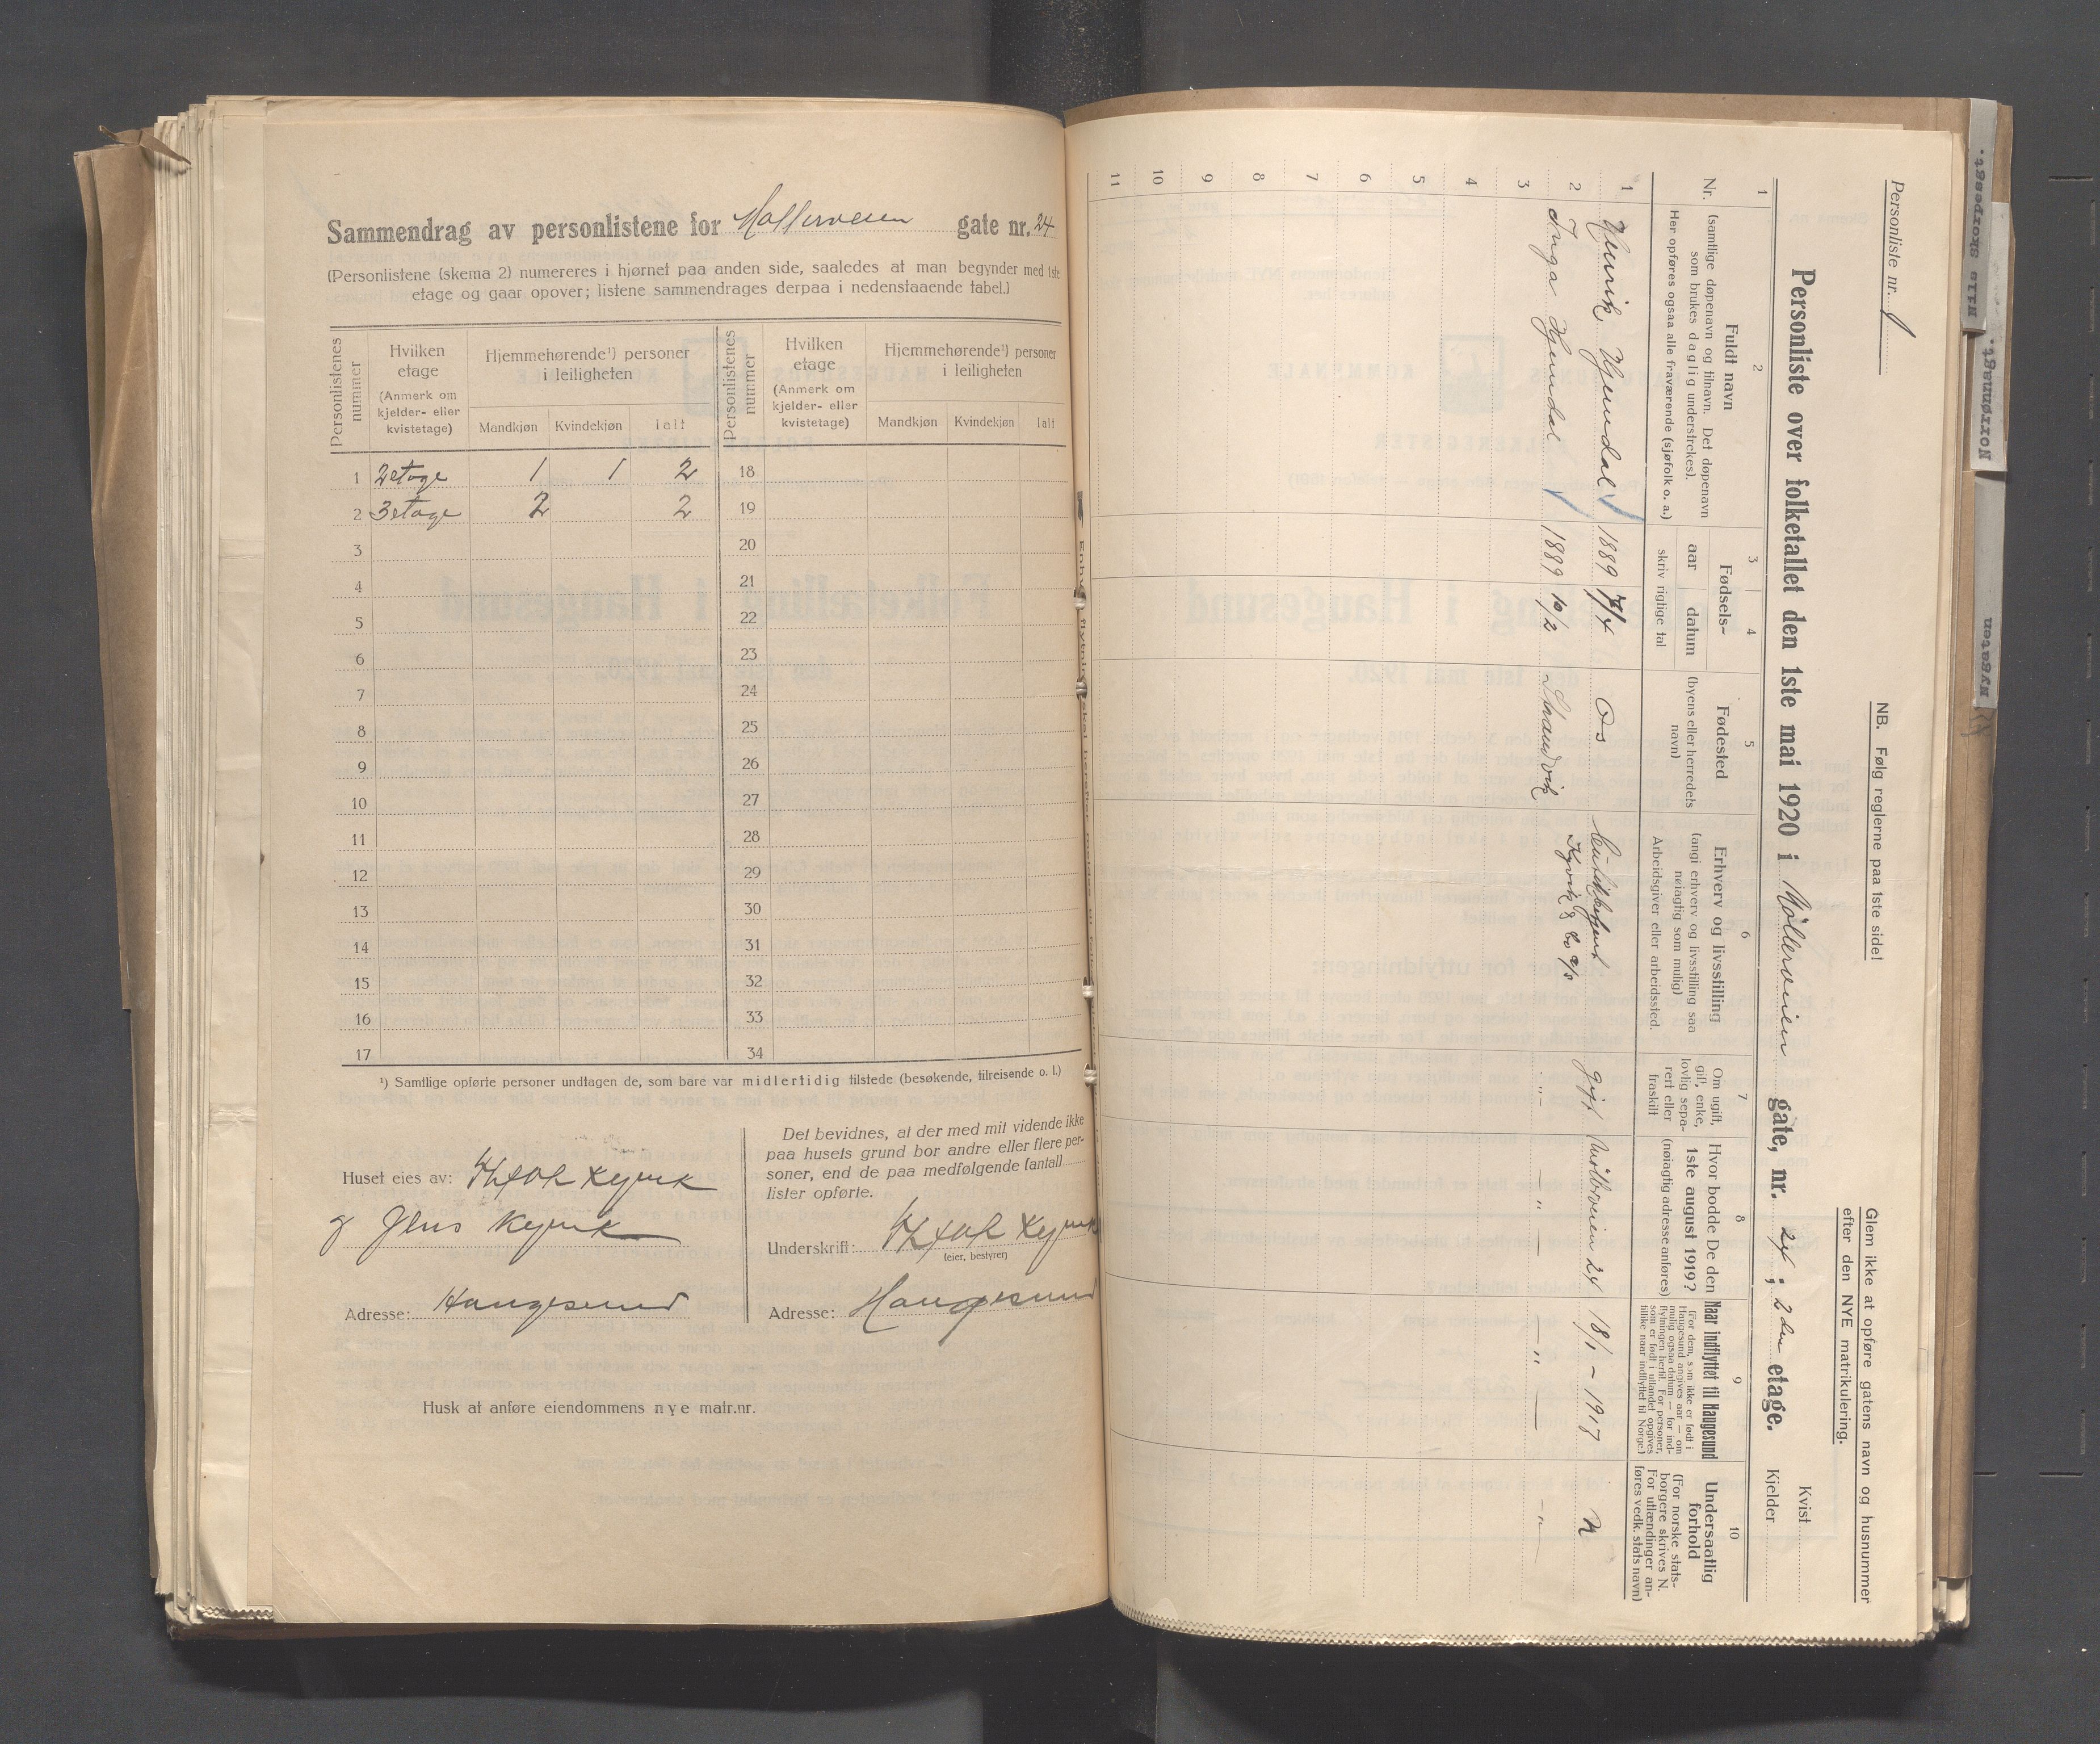 Sammendrag av personlistene for Mølleveien gate nr. 24
(Personlistene (skema 2) numereres i hjørnet paa anden side, saaledes at man begynder med 1ste
etage og gaar opover; listene sammendrages derpaa i nedenstaaende tabel.)
Personlistenes nummer
Hvilken etage (Anmerk om kjelder- eller kvistetage)
Hjemmehørende¹) personer i leiligheten
Mandkjøn Kvindekjøn Ialt
Personlistenes nummer
Hvilken etage (Anmerk om kjelder- eller kvistetage)
Hjemmehørende¹) personer i leiligheten
Mandkjøn Kvindekjøn Ialt
1 2 etage 1 1 2 18
2 3 etage 2 2 19
3 20
4 21
5 22
6 23
7 24
8 25
9 26
10 27
11 28
12 29
13 30
14 31
15 32
16 33
17 34
¹) Samtlige opførte personer undtagen de, som bare var midlertidig tilstede (besøkende, tilreisende o. l.)
Huset eies av:
Jens Kyvik
Adresse: Haugesund
Det bevidnes, at der med mit vidende ikke
paa husets grund bor andre eller flere per-
soner, end de paa medfølgende (antall
lister opførte.
Underskrift:
(eier, bestyrer)
Adresse: Haugesund
Husk at anføre eiendommens nye matr.nr.
Personliste nr. 1
NB. Følg reglerne paa 1ste side!
Glem ikke at opføre gatens navn og husnummer
efter den NYE matrikulering.
Personliste over folketallet den 1ste mai 1920 i Mølleveien gate, nr. 24; 2den etage.
Kvist
Kjelder
1 2 3 4 5 6 7 8 9 10
Nr.
Fuldt navn
(samtlige døpenavn og tilnavn. Det døpenavn
som brukes daglig understrekes).
Her opføres ogsaa alle fraværende (sjøfolk o. a.)
Fødsels-
aar datum
skriv rigtige tal
Fødested
(byens eller herredets
navn)
Erhverv og livsstilling
(angi erhverv og livsstilling saa
nøiagtig som mulig)
Arbeidsgiver eller arbeidssted.
Om ugift,
gift, enke,
lovlig sepa-
rert eller
fraskilt
Hvor bodde De den
1ste august 1919?
(nøiagtig adresse anføres)
Naar indflyttet til Haugesund
(For dem, som ikke er født i
Haugesund angives aar — om
mulig ogsaa datum — for ind-
flytningen hertil. For personer,
som er født i utlandet opgives
tillike naar indflyttet til Norge)
Undersaatlig
forhold
(For norske stats-
borgere skrives N.
For utlændinger an-
føres vedk. stats navn)
1 Henrik Hjemdal 1889 7/4 Os gift Mølleveien 24 18/1 - 1917 N
Kyvik & Co a/s
2 Inga Hjemdal 1889 10/2 Strandvik - " - - " - - " - - " -
3
4
5
6
7
8
9
10
11
Nille Skorpesgt.
Norrønnagt.
Nygaten